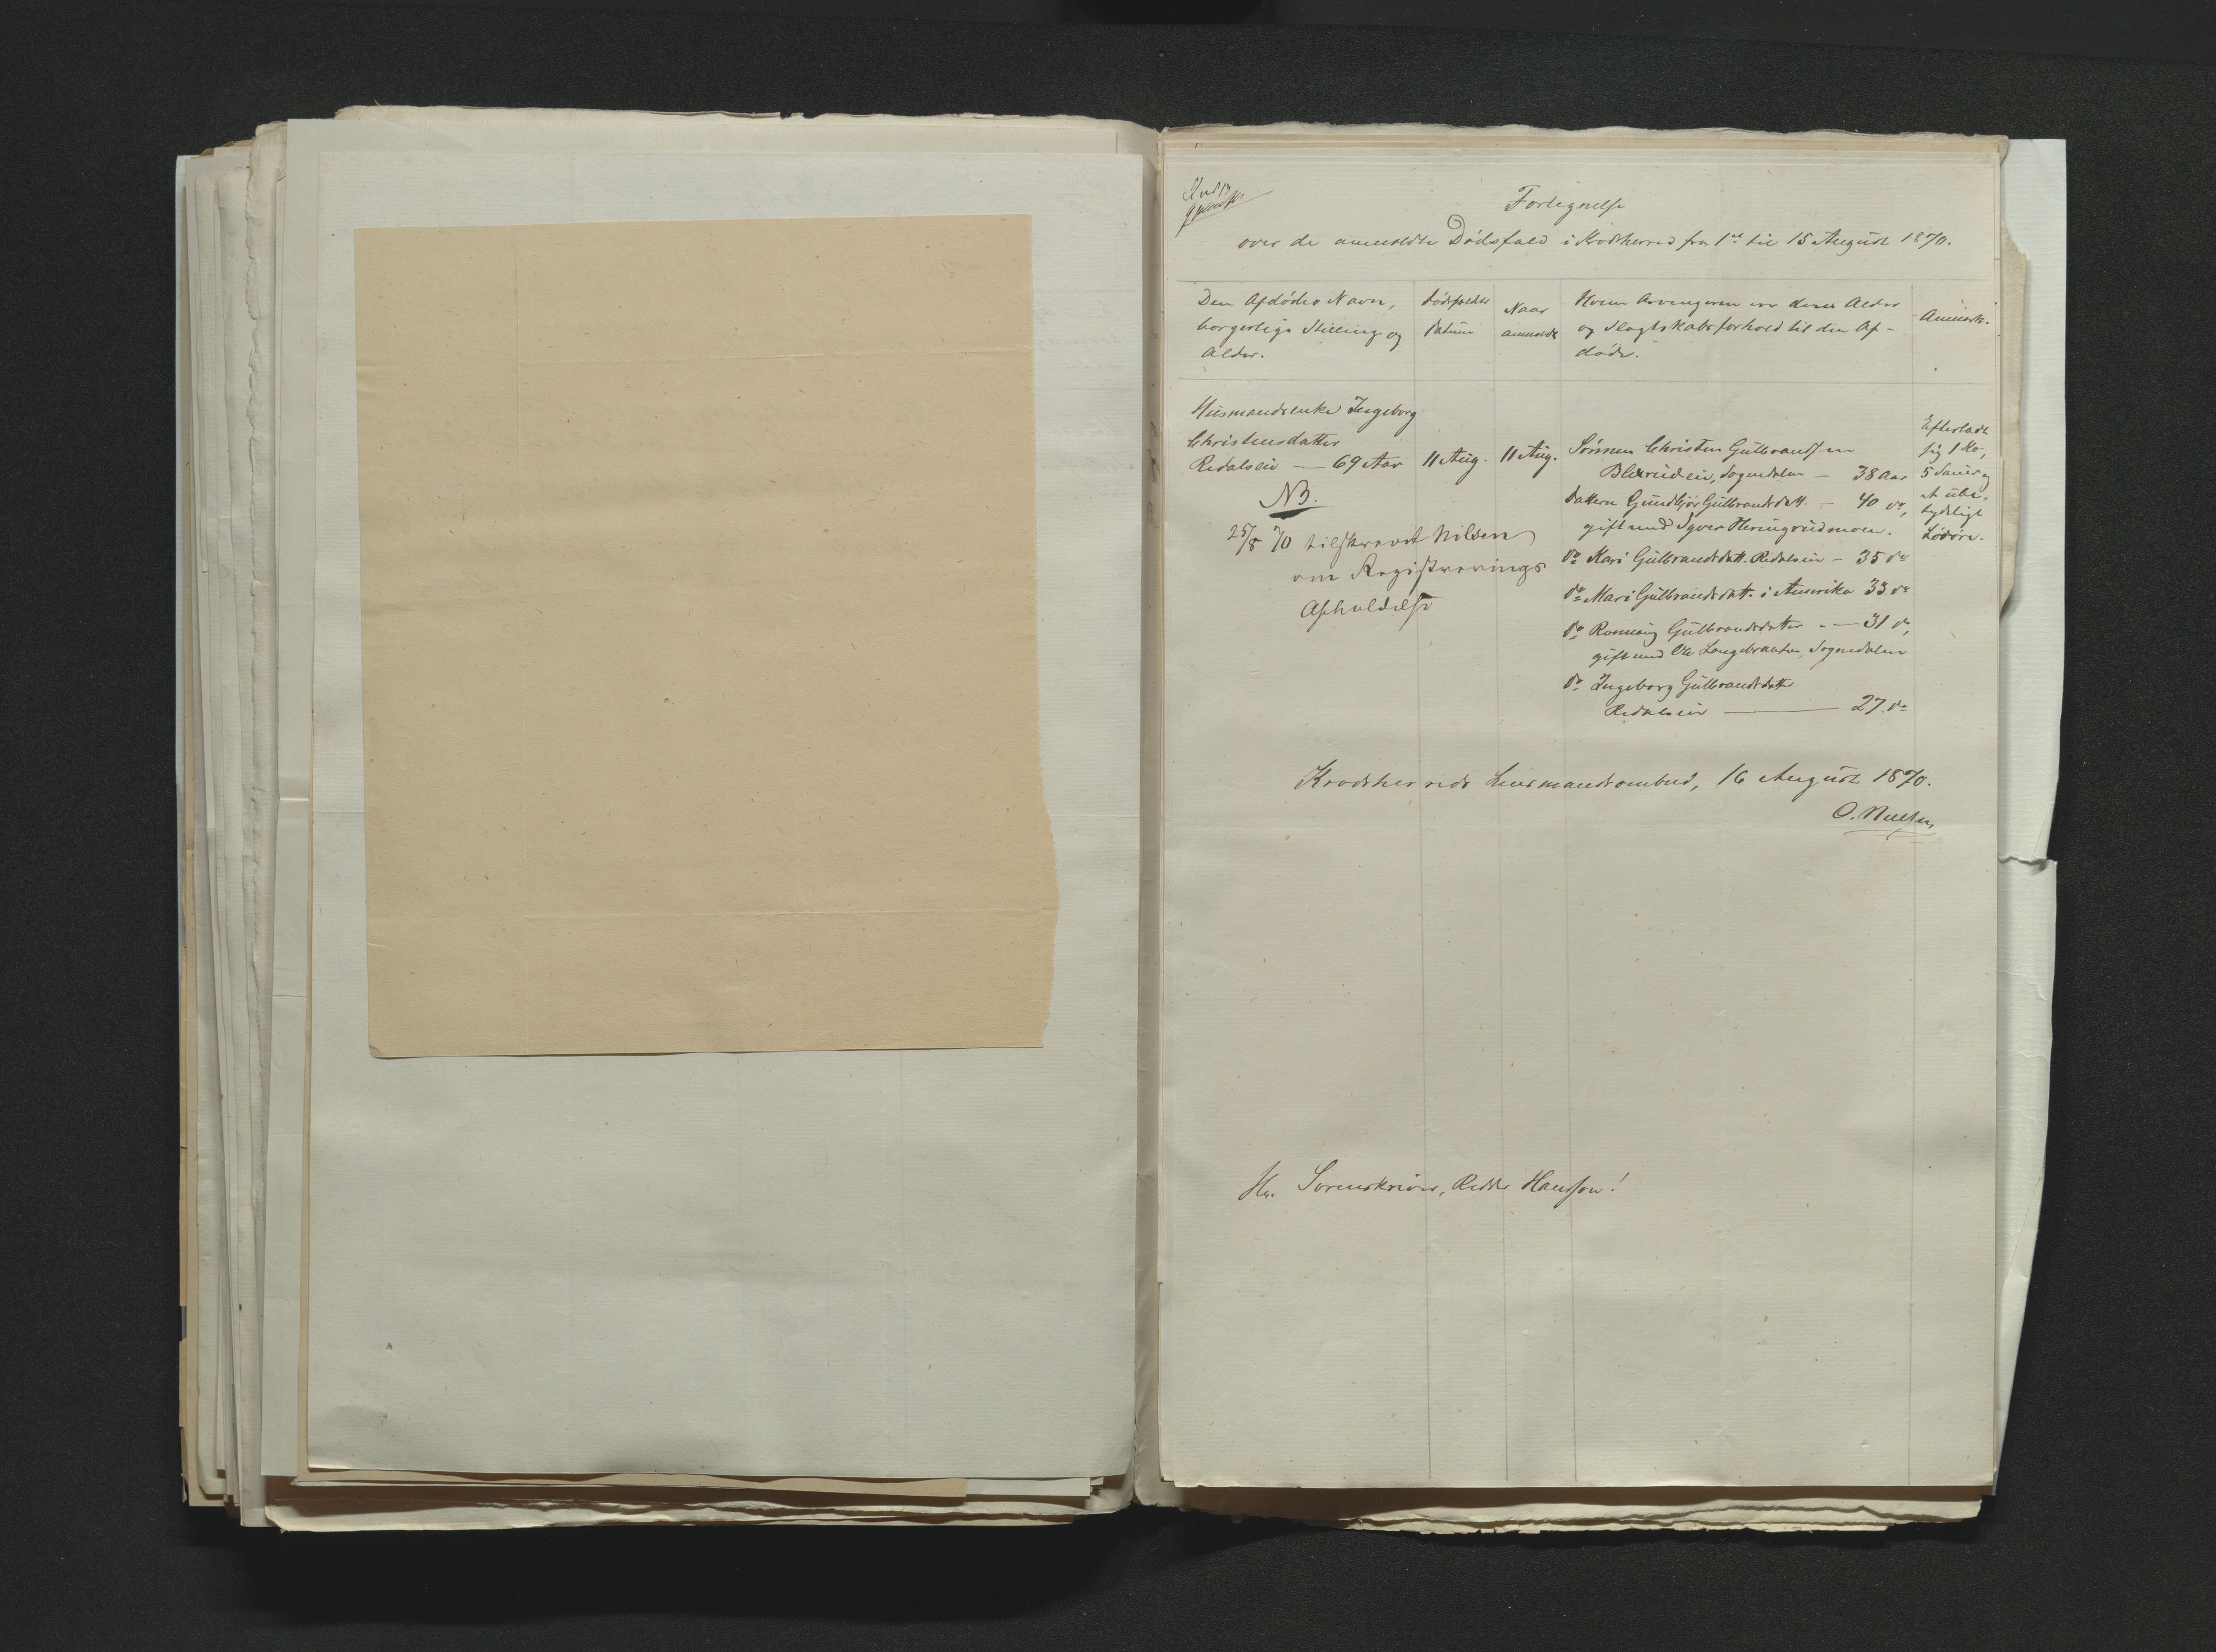 Fortegnelse
over de anmeldte Dødsfald i Krødsherred fra 1ste til 15 August 1870.
Den Afdødes Navn, borgerlige Stilling og Alder.
Dødsfaldets Datum
Naar anmeldt
Hvem Arvingerne ere deres Alder og Slægtskabsforhold til den Afdøde.
Anmærk.
Husmandsenke Ingeborg
Christensdatter
Redalseie — 69 Aar
11 Aug.
11 Aug.
Sønnen Christen Gulbrandsen
Blexrudeie, Sognedalen — 38 Aar
Datteren Gundbjør Gulbrandsdatt. — 40 do,
gift med Iver Heringrudmoen.
do Kari Gulbrandsdatt. Redalseie — 35 do
do Mari Gulbrandsdatt. i Amerika 33 do
do Ronnaug Gulbrandsdatter — 31 do,
gift med Ole Langebraaten, Sognedalen
do Ingeborg Gulbrandsdatter
Redalseie — 27 do
Efterladt
sig 1 Ko,
5 Sauer og
et ube-
tydeligt
Løsøre.
NB.
25/8 70 tilskrevet Nilsen
om Registrerings
Afholdelse
Krødsherreds Lensmandsombud, 16 August 1870.
O. Nielsen
Hr. Sorenskriver, Ridder Hansson!